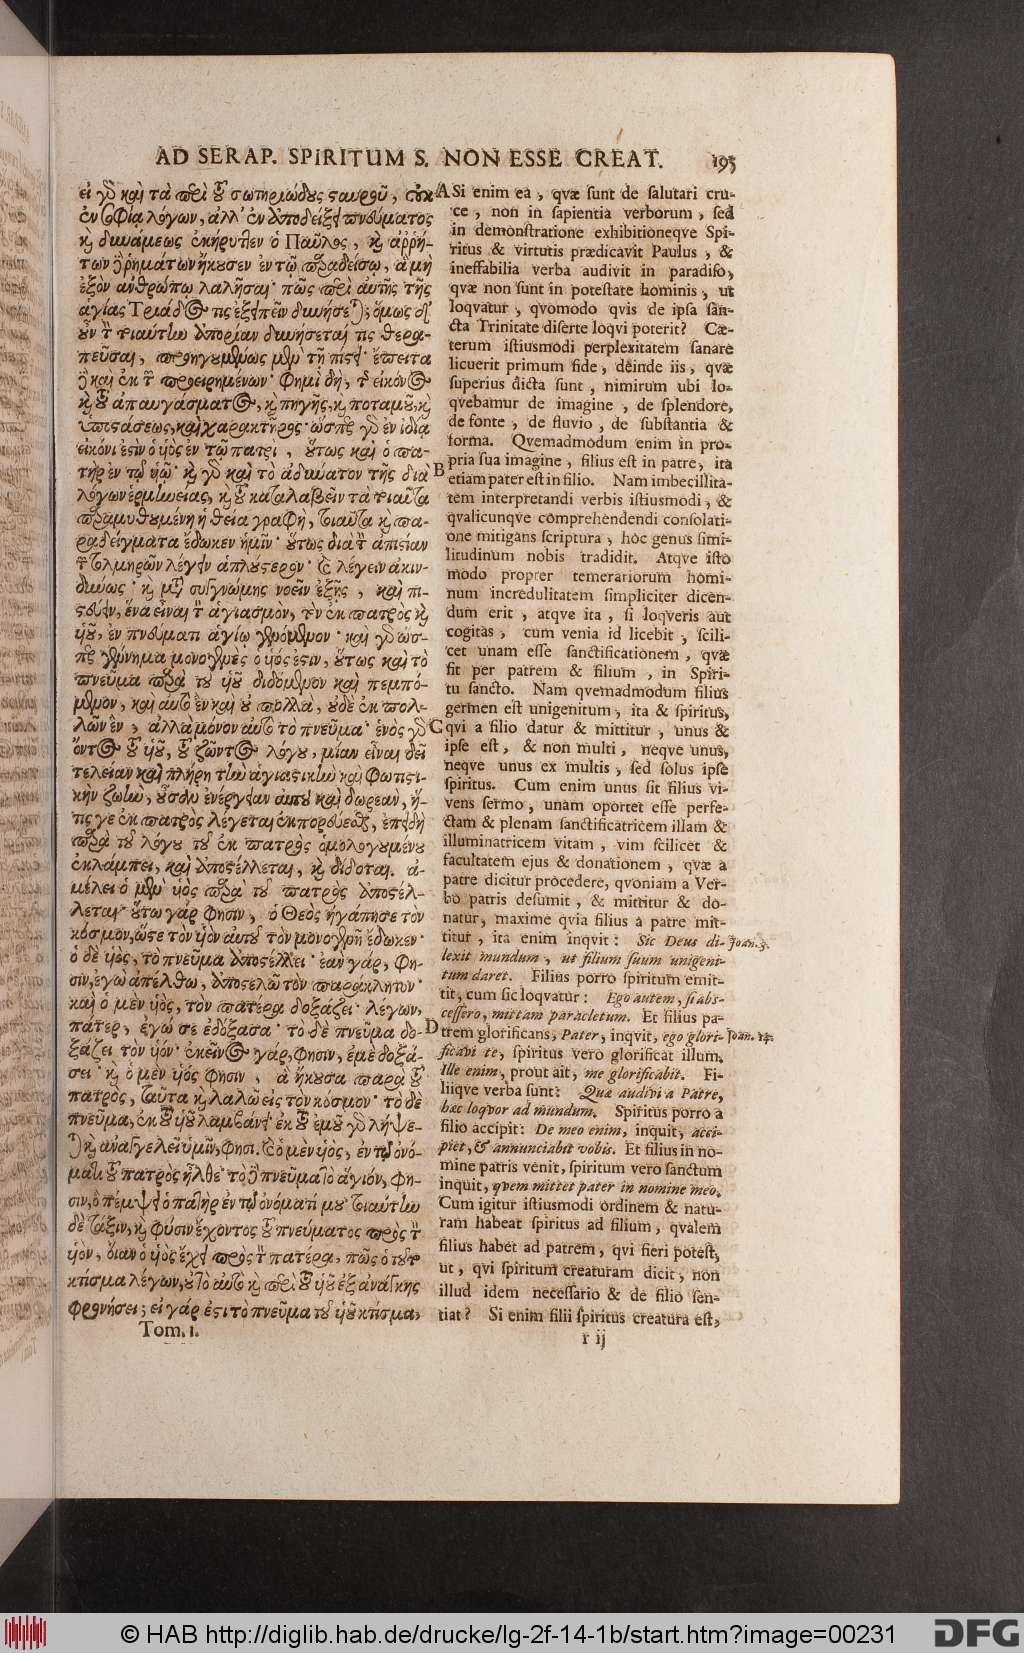 AD SERAP. SPIRITUM S. NON ESSE CREAT. 195
εἰ γὸ καὶ τὰ περὶ τοῦ σωτηριώδους σαυροῦ, οὐκ
ἐν σοφίᾳ λόγων, ἀλλ' ἐν ἀποδείξει πνεύματος
καὶ δυνάμεως ἐκήρυττεν ὁ Παῦλος, καὶ ἀῤῥή-
των ῥημάτων ἤκουσεν ἐν τῷ παραδείσῳ, ἃ μὴ
ἐξὸν ἀνθρώπῳ λαλῆσαι· πῶς περὶ αὐτῆς τῆς
ἁγίας Τριάδος τις ἐξειπεῖν δυνήσεται; ὅμως δ'
οὖν τὴν τοιαύτην ἀπορίαν δυνήσεταί τις θερα-
πεῦσαι, προηγουμένως μὲν τῇ πίστει· ἔπειτα
καὶ ἐκ τῶν προειρημένων· φημὶ δὴ, τῆς εἰκόνος
καὶ τοῦ ἀπαυγάσματος, καὶ πηγῆς, καὶ ποταμοῦ, καὶ
ὑποστάσεως, καὶ χαρακτῆρος· ὥσπερ γὰρ ἐν ἰδίᾳ
εἰκόνι ἐστὶν ὁ υἱὸς ἐν τῷ πατρὶ, οὕτως καὶ ὁ πα-
τὴρ ἐν τῷ υἱῷ· καὶ γὰρ καὶ τὸ ἀδύνατον τῆς διὰ
λόγων ἑρμηνείας, καὶ τοῦ καταλαβεῖν τὰ τοιαῦτα
παραμυθουμένη ἡ θεία γραφὴ, τοιαῦτα καὶ πα-
ραδείγματα ἔδωκεν ἡμῖν· οὕτως διὰ τὴν ἀπιστίαν
τῶν τολμηρῶν λέγειν ἁπλούστερον· καὶ λέγειν ἀκιν-
δύνως· καὶ μετὰ συγγνώμης νοεῖν ἐξῆς, καὶ πι-
στεύειν, ἕνα εἶναι τὸν ἁγιασμὸν, τὸν ἐκ πατρὸς καὶ
υἱοῦ, ἐν πνεύματι ἁγίῳ γενόμενον· καὶ γὰρ ὥσ-
περ γέννημα μονογενὲς ὁ υἱός ἐστιν, οὕτως καὶ τὸ
πνεῦμα παρὰ τοῦ υἱοῦ διδόμενον καὶ πεμπό-
μενον, καὶ αὐτὸ ἓν καὶ οὐ πολλὰ, οὐδὲ ἐκ πολ-
λῶν ἓν, ἀλλὰ μόνον αὐτὸ τὸ πνεῦμα· ἑνὸς γὰρ
ὄντος τοῦ υἱοῦ, τοῦ ζῶντος λόγου, μίαν εἶναι δεῖ
τελείαν καὶ πλήρη τὴν ἁγιαστικὴν καὶ φωτιστι-
κὴν ζωὴν, οὖσαν ἐνέργειαν αὐτοῦ καὶ δωρεὰν, ἥ-
τις γε ἐκ πατρὸς λέγεται ἐκπορεύεσθαι, ἐπειδὴ
παρὰ τοῦ λόγου τοῦ ἐκ πατρὸς ὁμολογουμένου
ἐκλάμπει, καὶ ἀποστέλλεται, καὶ δίδοται. ἀ-
μέλει ὁ μὲν υἱὸς παρὰ τοῦ πατρὸς ἀποστέλ-
λεται· οὕτω γάρ φησιν, ὁ Θεὸς ἠγάπησε τὸν
κόσμον, ὥστε τὸν υἱὸν αὐτοῦ τὸν μονογενῆ ἔδωκεν·
ὁ δὲ υἱὸς, τὸ πνεῦμα ἀποστέλλει· ἐὰν γάρ, φη-
σιν, ἐγὼ ἀπέλθω, ἀποστελῶ τὸν παράκλητον·
καὶ ὁ μὲν υἱὸς, τὸν πατέρα δοξάζει· λέγων,
πάτερ, ἐγώ σε ἐδόξασα· τὸ δὲ πνεῦμα δο-
ξάζει τὸν υἱόν· ἐκεῖνος γάρ, φησιν, ἐμὲ δοξά-
σει· καὶ ὁ μὲν υἱός φησιν, ἃ ἤκουσα παρὰ τοῦ
πατρὸς, ταῦτα καὶ λαλῶ εἰς τὸν κόσμον· τὸ δὲ
πνεῦμα, ἐκ τοῦ υἱοῦ λαμβάνει· ἐκ τοῦ ἐμοῦ γὰρ λήψε-
ται καὶ ἀναγγελεῖ ὑμῖν, φησι. καὶ ὁ μὲν υἱὸς, ἐν τῷ ὀνό-
ματι τοῦ πατρὸς ἦλθε· τὸ δὲ πνεῦμα τὸ ἅγιόν, φη-
σιν, ὃ πέμψει ὁ πατὴρ ἐν τῷ ὀνόματί μου· τοιαύτην
δὲ τάξιν, καὶ φύσιν ἔχοντος τοῦ πνεύματος πρὸς τὸν
υἱὸν, οἵαν ὁ υἱὸς ἔχει πρὸς τὸν πατέρα, πῶς ὁ τοῦτο
κτίσμα λέγων, οὐ τὸ αὐτὸ καὶ περὶ τοῦ υἱοῦ ἐξ ἀνάγκης
φρονήσει; εἰ γάρ ἐστι τὸ πνεῦμα τοῦ υἱοῦ κτίσμα,
Tom. 1.
A Si enim ea, qvæ sunt de salutari cru-
ce, non in sapientia verborum, sed
in demonstratione exhibitioneqve Spi-
ritus & virtutis prædicavit Paulus, &
ineffabilia verba audivit in paradiso,
qvæ non sunt in potestate hominis, ut
loqvatur, qvomodo qvis de ipsa san-
cta Trinitate diserte loqvi poterit? Cæ-
terum istiusmodi perplexitatem sanare
licuerit primum fide, deinde iis, qvæ
superius dicta sunt, nimirum ubi lo-
qvebamur de imagine, de splendore,
de fonte, de fluvio, de substantia &
forma. Qvemadmodum enim in pro-
B pria sua imagine, filius est in patre, ita
etiam pater est in filio. Nam imbecillita-
tem interpretandi verbis istiusmodi, &
qvalicunqve comprehendendi consolati-
one mitigans scriptura, hoc genus simi-
litudinum nobis tradidit. Atqve isto
modo propter temerariorum homi-
num incredulitatem simpliciter dicen-
dum erit, atqve ita, si loqveris aut
cogitas, cum venia id licebit, scili-
cet unam esse sanctificationem, qvæ
fit per patrem & filium, in Spiri-
tu sancto. Nam qvemadmodum filius
germen est unigenitum, ita & spiritus,
C qvi a filio datur & mittitur, unus &
ipse est, & non multi, neqve unus,
neqve unus ex multis, sed solus ipse
spiritus. Cum enim unus sit filius vi-
vens sermo, unam oportet esse perfe-
ctam & plenam sanctificatricem illam &
illuminatricem vitam, vim scilicet &
facultatem ejus & donationem, qvæ a
patre dicitur procedere, qvoniam a Ver-
bo patris desumit, & mittitur & do-
natur, maxime qvia filius a patre mit-
titur, ita enim inqvit: Sic Deus di- Joan. 3.
lexit mundum, ut filium suum unigeni-
tum daret. Filius porro spiritum emit-
tit, cum sic loqvatur: Ego autem, si abs-
cessero, mittam paracletum. Et filius pa-
D trem glorificans, Pater, inqvit, ego glori- Joan. 14.
ficavi te, spiritus vero glorificat illum.
Ille enim, prout ait, me glorificabit. Fi-
liiqve verba sunt: Quæ audivi a Patre,
hæc loqvor ad mundum. Spiritus porro a
filio accipit: De meo enim, inquit, acci-
piet, & annunciabit vobis. Et filius in no-
mine patris venit, spiritum vero sanctum
inquit, qvem mittet pater in nomine meo.
Cum igitur istiusmodi ordinem & natu-
ram habeat spiritus ad filium, qvalem
filius habet ad patrem, qvi fieri potest,
ut, qvi spiritum creaturam dicit, non
illud idem necessario & de filio sen-
tiat? Si enim filii spiritus creatura est,
r ij
© HAB http://diglib.hab.de/drucke/lg-2f-14-1b/start.htm?image=00231
DFG